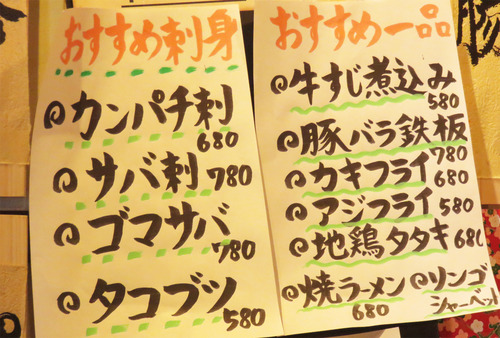 おすすめ刺身
カンパチ刺
680
サバ刺 780
ゴマサバ
780
タコブツ
580
おすすめ一品
牛すじ煮込み
580
豚バラ鉄板
780
カキフライ
680
アジフライ 580
地鶏タタキ 680
焼ラーメン
680
リンゴ
シャーベット